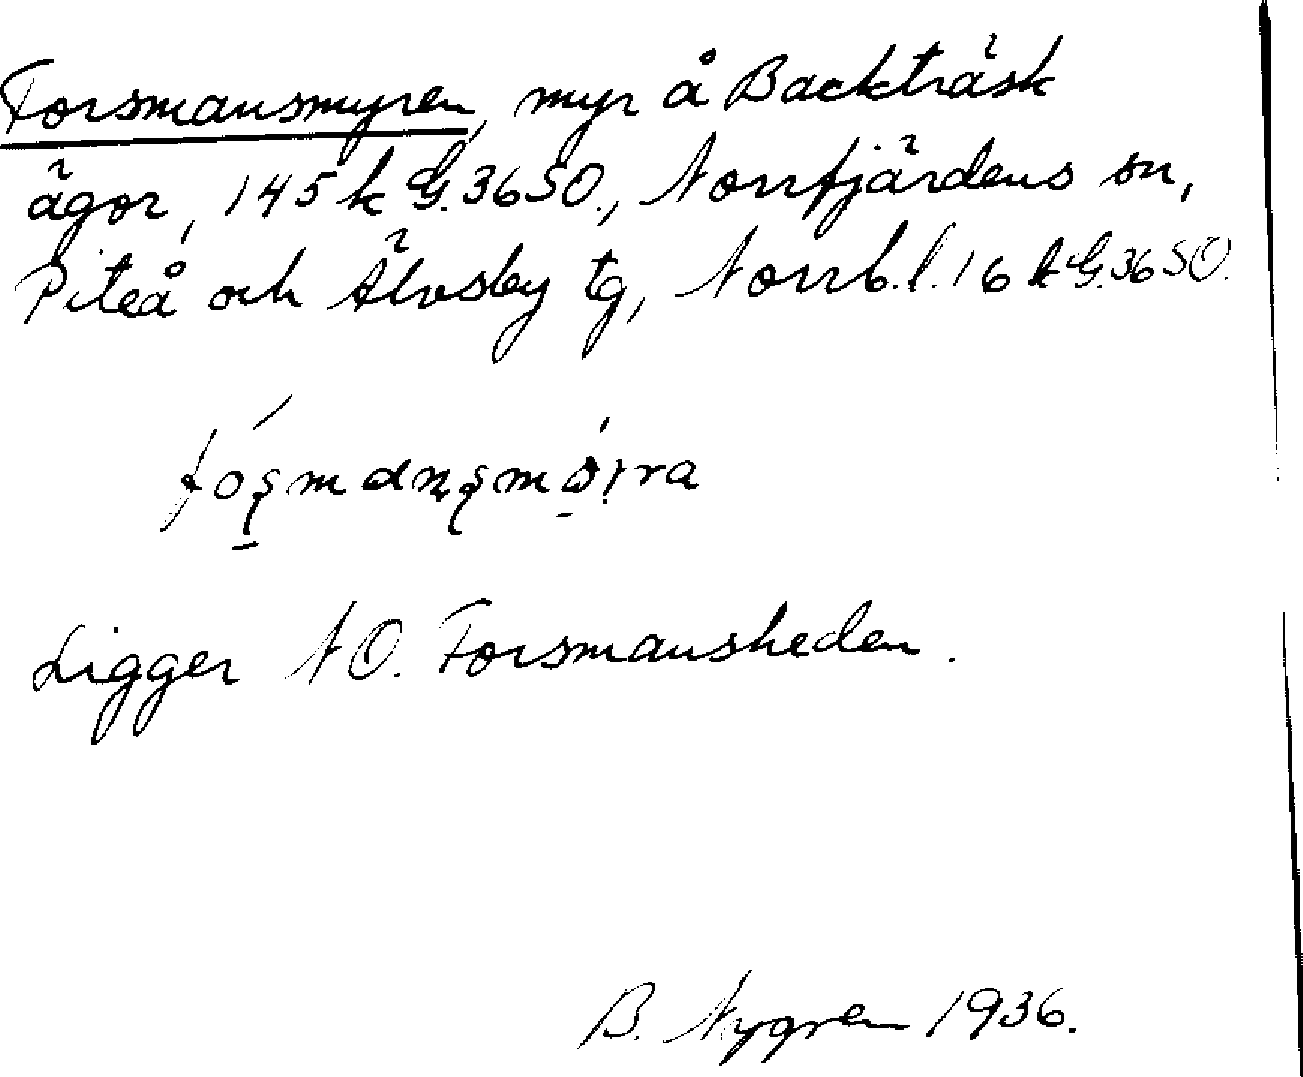 Forsmansmyren, myr å Backträsk
ägor, 145 k G.3650., Norrfjärdens sn,
Piteå och Älvsby tg, Norrb.l. 16 k G.3650.
Ligger NO. Forsmansheden.
B. Nygren 1936.